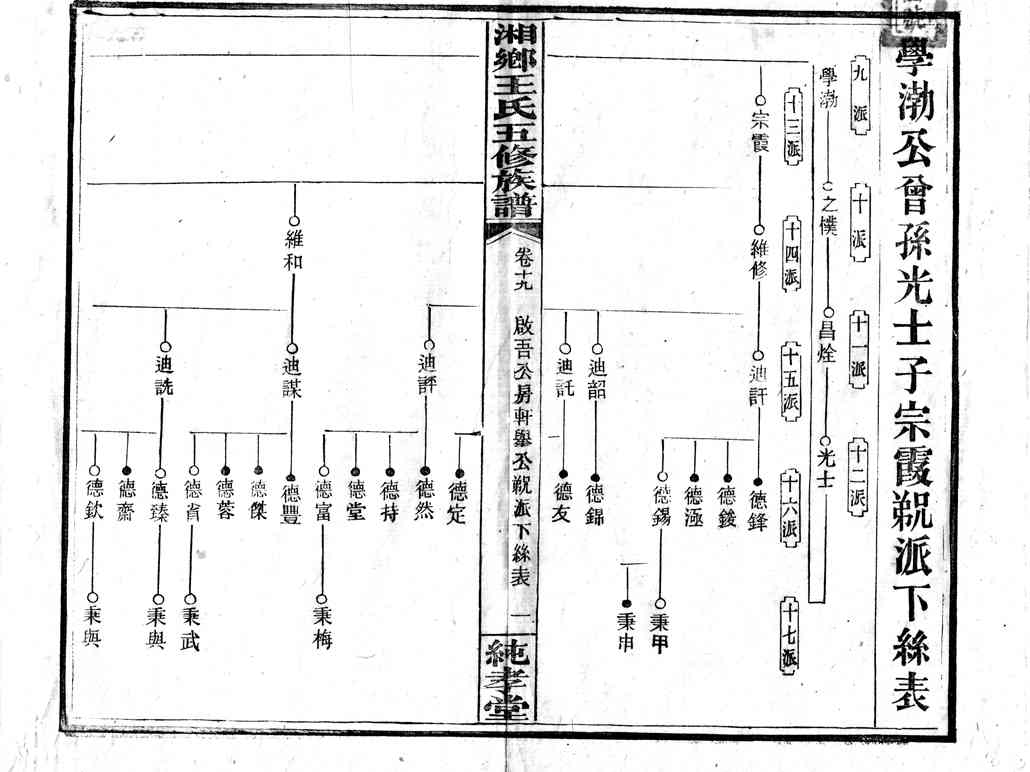 學渤公曾孫光士子宗霞䚷派下絲表
九派
十派
十一派
十二派
學渤
之樸
昌烇
光士
十三派
十四派
十五派
十六派
十七派
宗霞
維修
迪訐
德鋒
德鋑
德極
德錫
秉甲
秉申
迪韶
德錦
迪託
德友
湘鄉王氏五修族譜
卷十九
啟吾公房軒舉公派下絲表
一
純孝堂
德定
迪評
德然
德持
德堂
德富
秉梅
維和
迪謀
德豐
德傑
德蓉
德省
秉武
迪詵
德臻
秉與
德齋
德欽
秉與